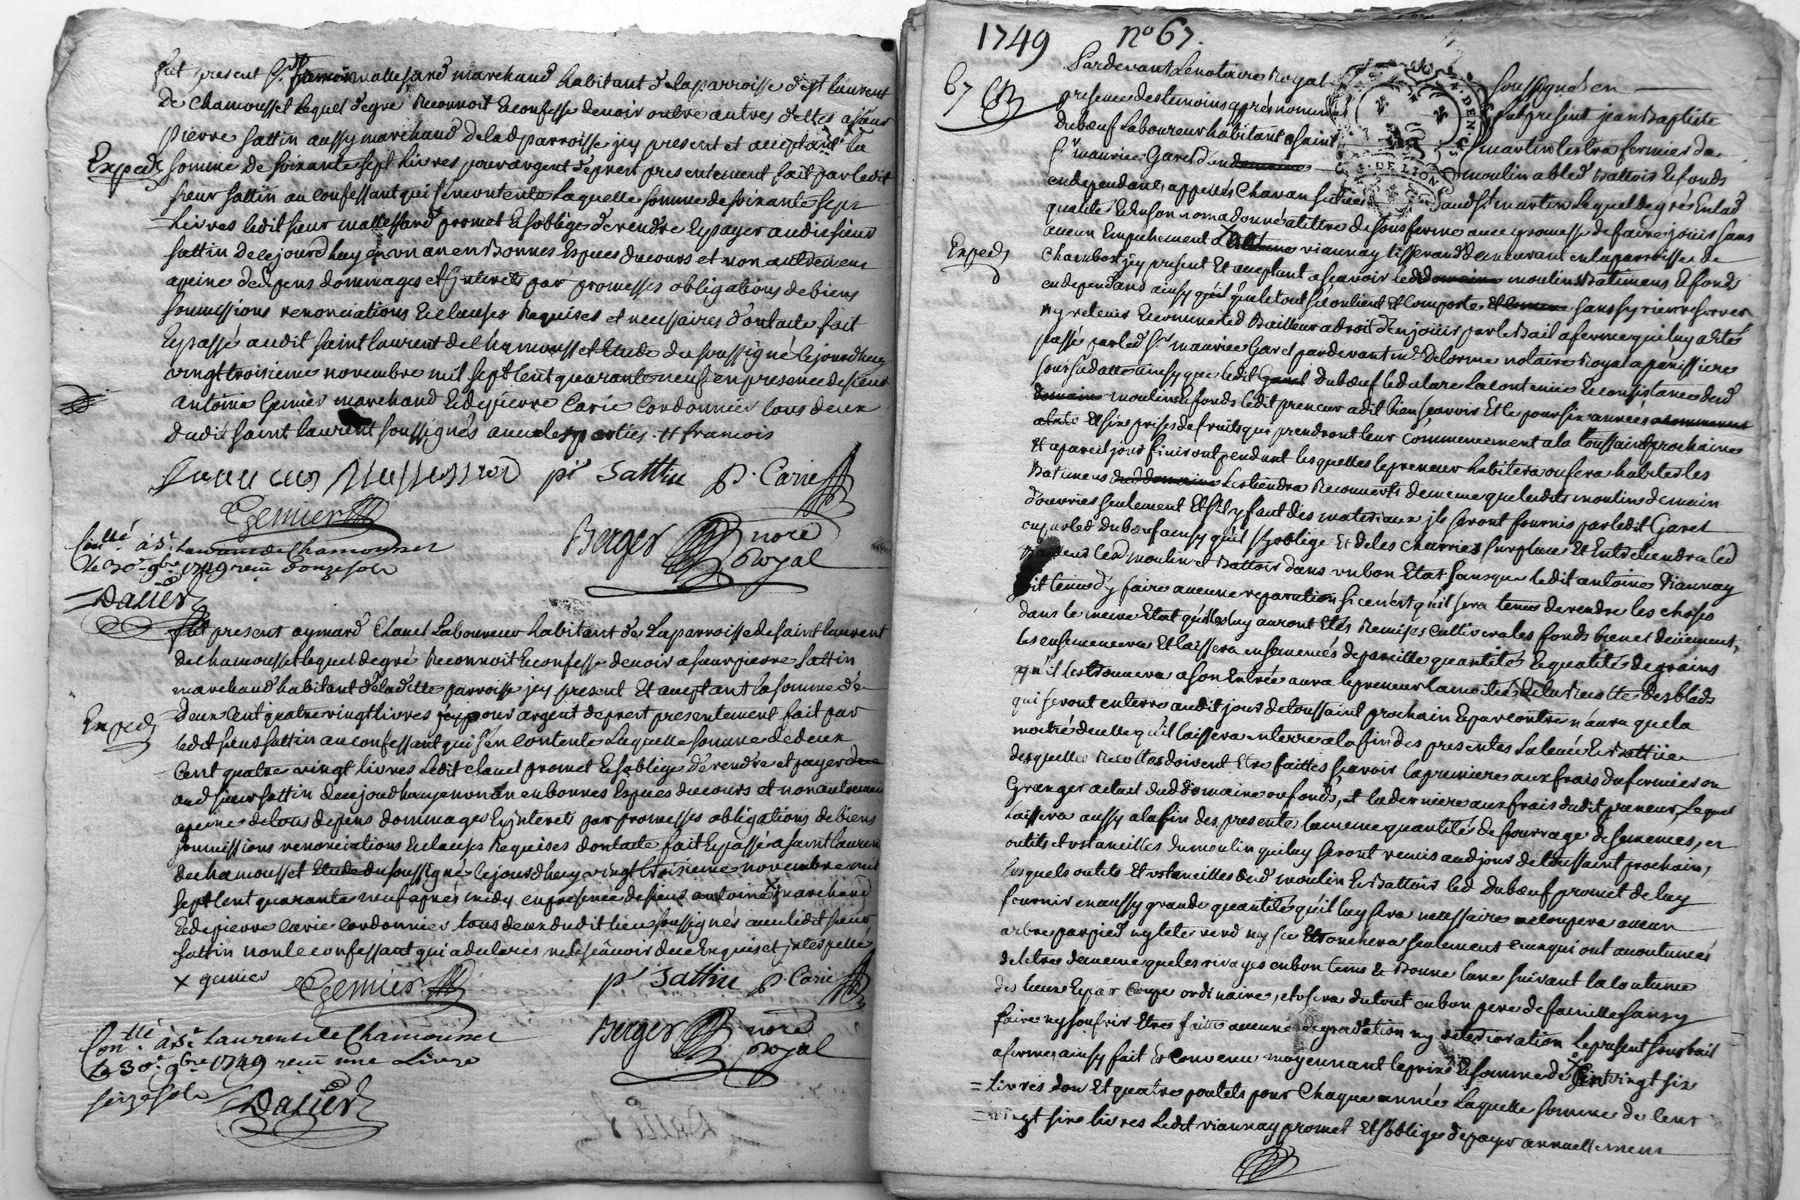 fut present Sr mallessard marchand habitant de la parroisse de st laurent
de chamousset lequel de gre Reconnoit & confesse devoir outre autres dettes a sieur
pierre sattin aussy marchand de lad parroisse jcy present et acceptant la
Exped
somme de soixante sept livres pour argent de prest presentement fait par ledit
sieur sattin au confessant qui s'en contente laquelle somme de soixante sept
livres ledit sieur mallessard promet & s'oblige de rendre & payer audit sieur
sattin de ce jourdhuy en un an en Bonnes Espees du cours et non autrement
a peine de depens dommages et jnterets par promesses obligations de biens
soumissions renonciations & clauses Requises et necessaires dont acte fait
& passé audit saint laurent de chamousset Etude du soussigné le jourdhuy
vingt troisieme novembre mil sept cent quarante neuf en presence de sieur
antoine Genier marchand & de pierre Carie Cordonnier tous deux
dudit saint laurent soussignés avec les parties. francois
pr sattin P. Carie
Genier
Conllé à St Laurent de Chamousset
le 30e 9bre 1749 reçu douze sols
Berger nore
Royal
Dalier
fut present aymard Clauel Laboureur habitant de la parroisse de saint laurent
de chamousset lequel de gré Reconnoit & confesse devoir a sieur pierre sattin
marchand habitant de ladite parroisse jcy present Et acceptant la somme de
Exped
deux cent quatre vingt livres pour argent de prest presentement fait par
ledit sieur sattin au confessant qui s'en contente laquelle somme de deux
cent quatre vingt livres ledit clauel promet & s'oblige de rendre et payer
aud sieur sattin de ce jourdhuy en un an en bonnes Espees du cours et non autrement
a peine de tous depens dommages & jnterets par promesses obligations de biens
soumissions renonciations & clauses Requises dont acte fait & passé a saint laurent
de chamousset Etude du soussigné le jourdhuy vingt troisieme novembre mil
sept cent quarante neuf après midy en presence de sieur antoine x marchand
& de pierre carie cordonnier tous deux dudit lieu soussignés avec ledit sieur
sattin non le confessant qui a declaré ne le sçavoir de ce Enquis et jnterpellé
x genier
Genier pr sattin P Carie
Conllé à St Laurent de Chamousset
le 30e 9bre 1749 reçu une Livre
seize sols
Berger nore
Royal
Dalier
1749 no 67.
67
Pardevant Le notaire Royal soussigné & en
presence des temoins après nommés fut present jean Baptiste
Dubœuf Laboureur habitant a saint martin lestra fermier de
sr maurice Garel d'un moulin a bled Battoir & fonds
en dependants appellés Chavan situés aud st martin lequel de gré en lad
qualité & de son nom a donné a titre de sousferme avec promesse de faire jouir sans
Exped
aucun Empechement a viannay tisserand demeurant en la parroisse de
Chambost jcy present Et acceptant a sçavoir led moulin Batimens & fonds
en dependants ainsy qu'il que le tout se contient et comporte sans sy rien reserver
ny retenir & comme led Bailleur a droit d'en jouir par le Bail a ferme qui luy a eté
passé par led sr maurice Garel pardevant me Delorme notaire Royal a panissiere
sous sa datte ainsy que ledit Dubœuf led a declaré la contenue & consistance dud
moulin & fonds ledit preneur a dit bien sçavoir Et ce pour six années
Et six prises de fruits qui prendront leur Commencement a la toussaint prochaine
Et a pareil jour finiront pendant lesquelles le preneur habitera ou fera habiter les
Batimens les tiendra Recouverts de meme que ledit moulin de main
d'ouvrier seulement Et s'il y faut des materiaux ils seront fournis par ledit Garel
ou par led Dubœuf ainsy qu'il s'y oblige Et de les charrier sur place Et Entretiendra led
preneur led moulin et Battoir dans un bon Etat sans que ledit antoine Viannay
soit tenu d'y faire aucune reparation si ce n'est qu'il sera tenu de rendre les choses
dans le meme Etat qu'elles luy auront Etés Remises cultivera les fonds bien et deüement,
les ensemencera Et laissera ensemencés de pareille quantité & qualité de grains
qu'il les trouvera a son Entrée aura le preneur la moitié de la Recolte des bleds
qui seront en terre audit jour de toussaint prochain & par contre n'aura que la
moitié de celle qu'il laissera en terre a la fin des presentes la levée & Battüe
desquelles Recoltes doivent Etre faittes sçavoir la premiere aux frais du fermier ou
Granger actuel dud domaine ou fonds, et la derniere aux frais dudit preneur, Lequel
laissera aussy a la fin des presentes la meme quantité de fourrage de semences, et
outils et ustancilles du moulin qui luy seront remis aud jour de toussaint prochain,
lesquels outils Et ustancilles dud moulin & Battoir led Dubœuf promet de luy
fournir en aussy grande quantité qu'il luy sera necessaire ne coupera aucun
arbre par pied ny tete verd ny sec Et tronchera seulement ceux qui ont accoutumés
de l'etre de meme que les rivages en bon tems & Bonne lune suivant la coutume
des lieux & par Coupe ordinaire, et usera du tout en bon pere de famille sans y
faire ny souffrir Etre faitte aucune degradation ny deterioration le present sous bail
a ferme ainsy fait & Convenu moyennant le prix & somme de Cent vingt six
livres d'un Et quatre poulets pour Chaque année laquelle somme de Cent
vingt six livres ledit viannay promet Et s'oblige de payer annuellement